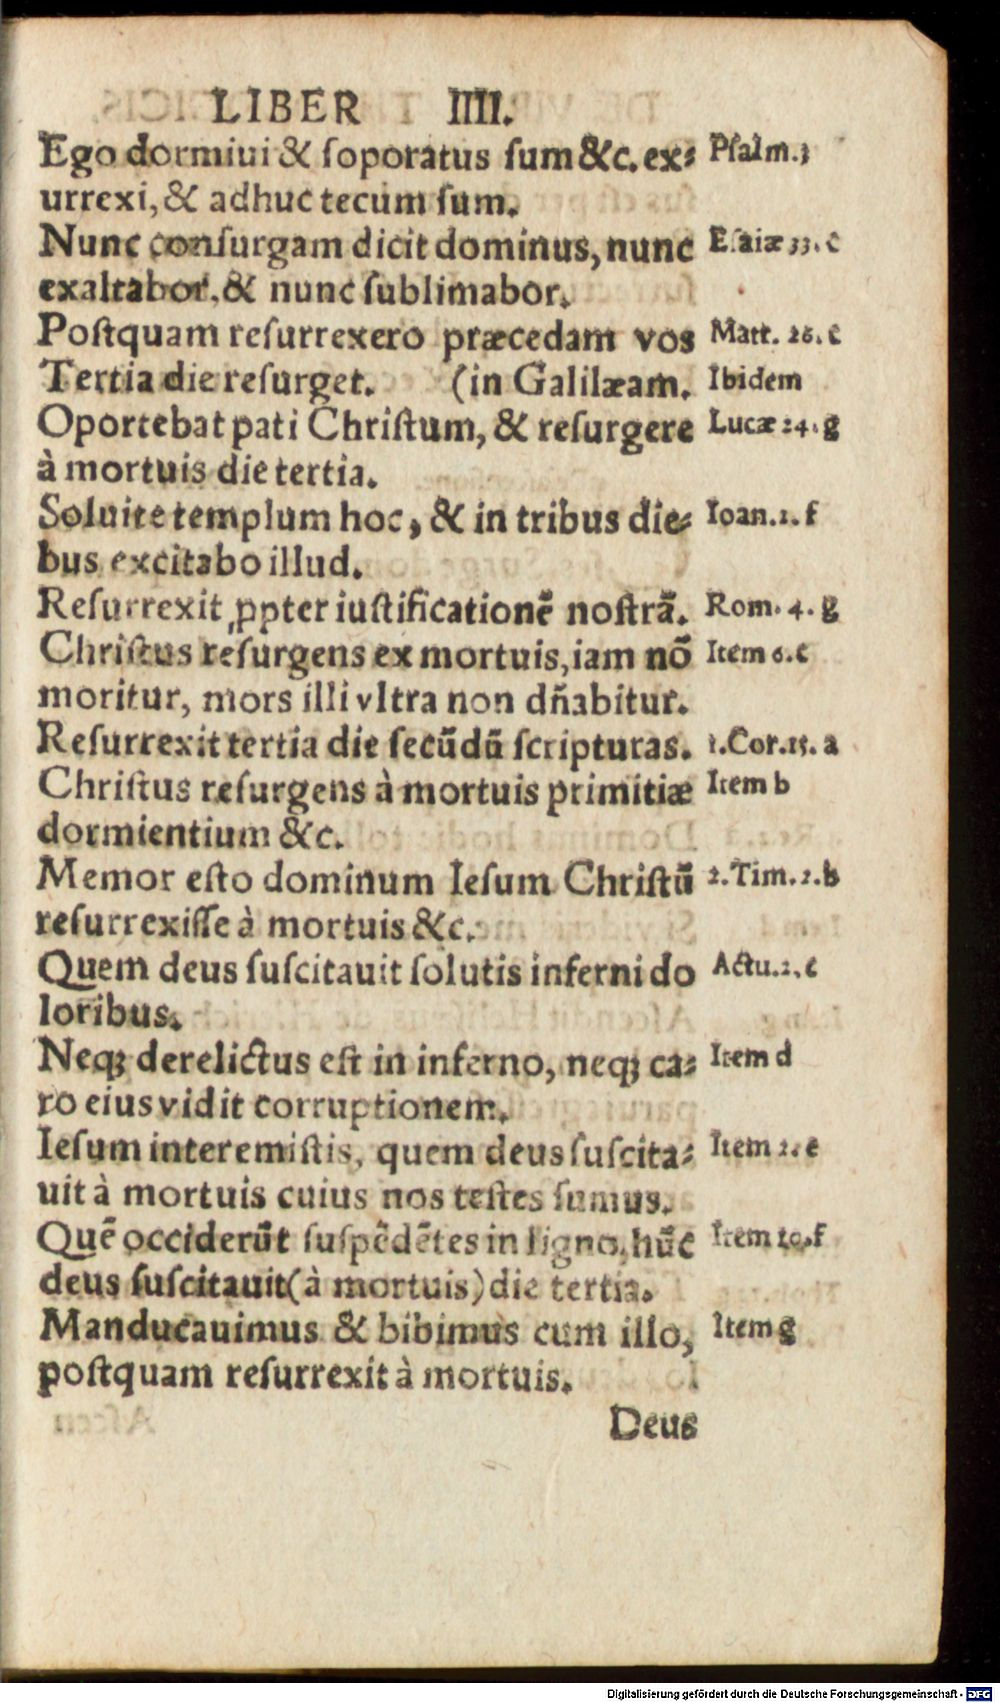 LIBER IIII.
Ego dormiui & ſoporatus ſum &c. ex⸗ Pſalm. 3
urrexi, & adhuc tecum ſum.
Nunc conſurgam dicit dominus, nunc Eſaiæ 33. c
exaltabor, & nunc ſublimabor.
Poſtquam reſurrexero præcedam vos Matt. 26. c
Tertia die reſurget. (in Galilæam. Ibidem
Oportebat pati Chriſtum, & reſurgere Lucæ 24. g
à mortuis die tertia.
Soluite templum hoc, & in tribus die⸗ Ioan. 2. f
bus excitabo illud.
Reſurrexit ꝓpter iuſtificationẽ noſtrã. Rom. 4. g
Chriſtus reſurgens ex mortuis, iam nõ Item 6. c
moritur, mors illi vltra non dñabitur.
Reſurrexit tertia die ſecũdũ ſcripturas. 1. Cor. 15. a
Chriſtus reſurgens à mortuis primitiæ Item b
dormientium &c.
Memor eſto dominum Ieſum Chriſtũ 2. Tim. 2. b
reſurrexiſſe à mortuis &c.
Quem deus ſuſcitauit ſolutis inferni do Actu. 2. c
loribus.
Neqꝫ derelictus eſt in inferno, neqꝫ ca⸗ Item d
ro eius vidit corruptionem.
Ieſum interemiſtis, quem deus ſuſcita⸗ Item 2. e
uit à mortuis cuius nos teſtes ſumus.
Quẽ occiderũt ſuſpẽdẽtes in ligno, hũc Item 10. f
deus ſuſcitauit (à mortuis) die tertia.
Manducauimus & bibimus cum illo, Item g
poſtquam reſurrexit à mortuis.
Deus
Digitalisierung gefördert durch die Deutsche Forschungsgemeinschaft - DFG